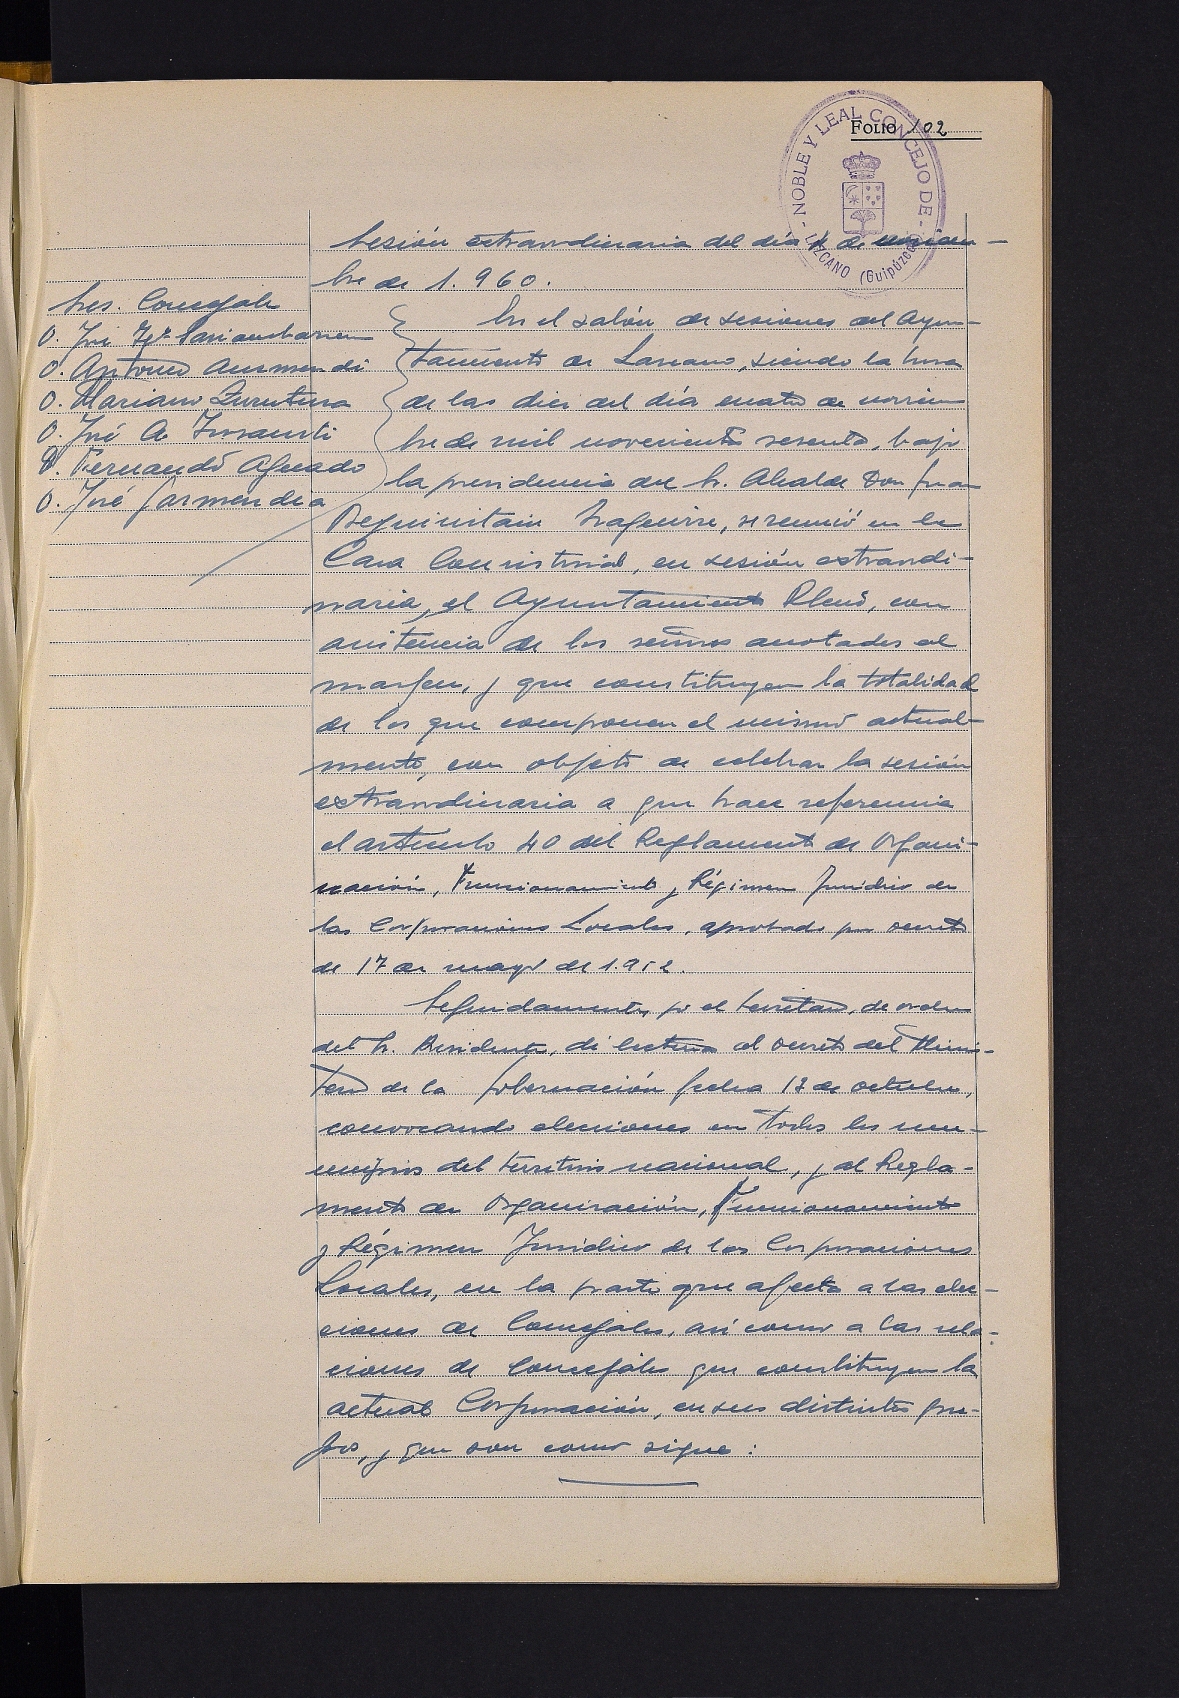 FOLIO 102
NOBLE Y LEAL CONCEJO DE LAZCANO (Guipúzcoa)
Sesión extraordinaria del día 4 de noviem-
bre de 1.960.
Sres. Concejales
D. José
D. Antonio Ausmendi
D. Mariano Zurutuza
D. José A. Insausti
D. Fernando Aguado
D. José Garmendia
En el salón de sesiones del Ayun-
tamiento de Lazcano, siendo la hora
de las diez del día cuatro de noviem
bre de mil novecientos sesenta, bajo
la presidencia del Sr. Alcalde Don Juan
Beguiristain, se reunió en la
Casa Consistorial, en sesión extraordi-
naria, el Ayuntamiento Pleno, con
asistencia de los señores anotados al
margen, y que constituyen la totalidad
de los que componen el mismo actual-
mente, con objeto de celebrar la sesión
extraordinaria a que hace referencia
el artículo 40 del Reglamento de Organi-
zación, Funcionamiento y Régimen Jurídico de
las Corporaciones Locales, aprobado por decreto
de 17 de mayo de 1.952.
Seguidamente, yo el Secretario, de orden
del Sr. Presidente, di lectura al decreto del Minis-
terio de la Gobernación fecha 13 de octubre,
convocando elecciones en todos los mu-
nicipios del territorio nacional, y al Regla-
mento de Organización, Funcionamiento
y Régimen Jurídico de las Corporaciones
Locales, en la parte que afecta a las elec-
ciones de Concejales, así como a las rela-
ciones de Concejales que constituyen la
actual Corporación, en sus distintos gru-
pos, y que son como sigue: